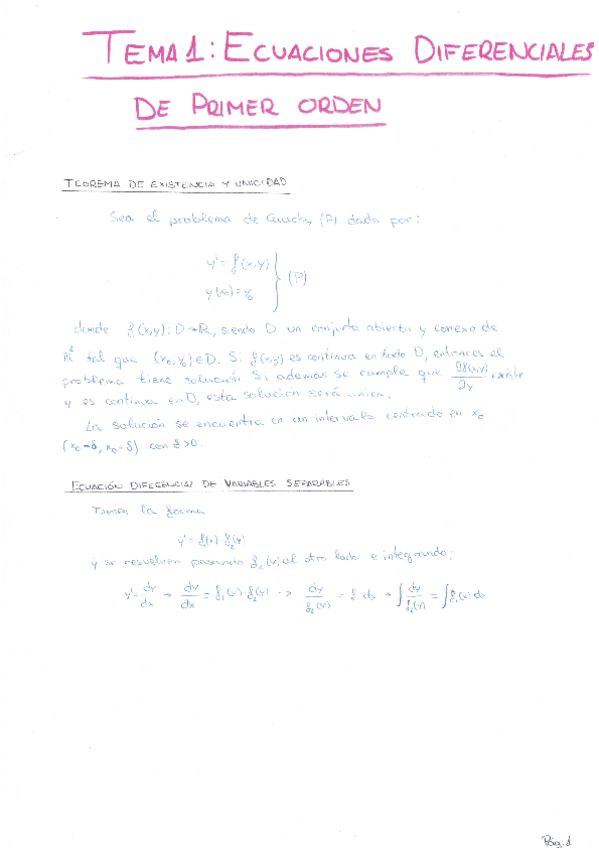 TEMA 1: ECUACIONES DIFERENCIALES
DE PRIMER ORDEN
TEOREMA DE EXISTENCIA Y UNICIDAD
Sea el problema de Cauchy (P) dado por:
y' = f(x,y)
y(x₀) = y₀ } (P)
donde f(x,y): D→R, siendo D un conjunto abierto y conexo de
R² tal que (x₀,y₀)∈D. Si f(x,y) es continua en todo D, entonces el
problema tiene solución. Si además se cumple que ∂f(x,y)/∂y existe
y es continua en D, esta solución será unica.
La solución se encuentra en un intervalo centrado en x₀
(x₀-δ, x₀+δ) con δ>0.
ECUACIÓN DIFERENCIAL DE VARIABLES SEPARABLES
Tienen la forma
y' = f₁(x)·f₂(y)
y se resuelven pasando f₂(y) al otro lado e integrando:
y' = dy/dx → dy/dx = f₁(x)·f₂(y) -> dy/f₂(y) = f₁ dx → ∫ dy/f₂(y) = ∫ f₁(x) dx
Pág. 1